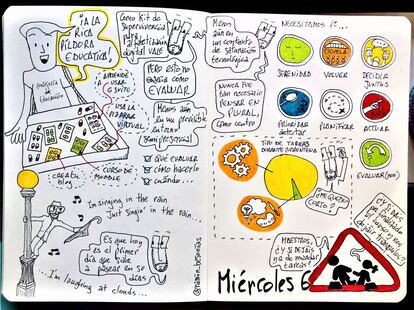 ¡A LA
RICA
PÍLDORA
EDUCATIVA!
CONSEJERÍA
DE
EDUCACIÓN
APRENDE
A USAR
GSUITE
USA LA
PIZARRA
VIRTUAL
CURSO DE
MOODLE
¡CREA TU
BLOG...
Como Kit de
supervivencia
para
alfabetización
digital vale
Pero esto no
enseña cómo
EVALUAR
Menos aún
en un previsible
entorno
semipresencial
QUÉ EVALUAR
CÓMO HACERLO
CUÁNDO...
I'm singing in the rain
Just singin' in the rain...
Es que hoy
es el primer
día que sale
a pasear en 50
días
...I'm laughing at clouds...
Menos
aún en
un contexto
de saturación
tecnológica
Nunca fue
tan necesario
PENSAR EN
PLURAL,
como centro
NECESITAMOS...
SERENIDAD
VOLVER
DECIDIR
JUNTOS
PRIORIZAR
detectar
PLANIFICAR
ACTUAR
EVALUAR(NOS)
TIPO DE TAREAS
DURANTE CUARENTENA
¿ME QUEDO
CORTO?
MAESTROS,
¿Y SI DEJÁIS
YA DE MANDAR
TAREAS?
Miércoles 6
@ramon_besonias